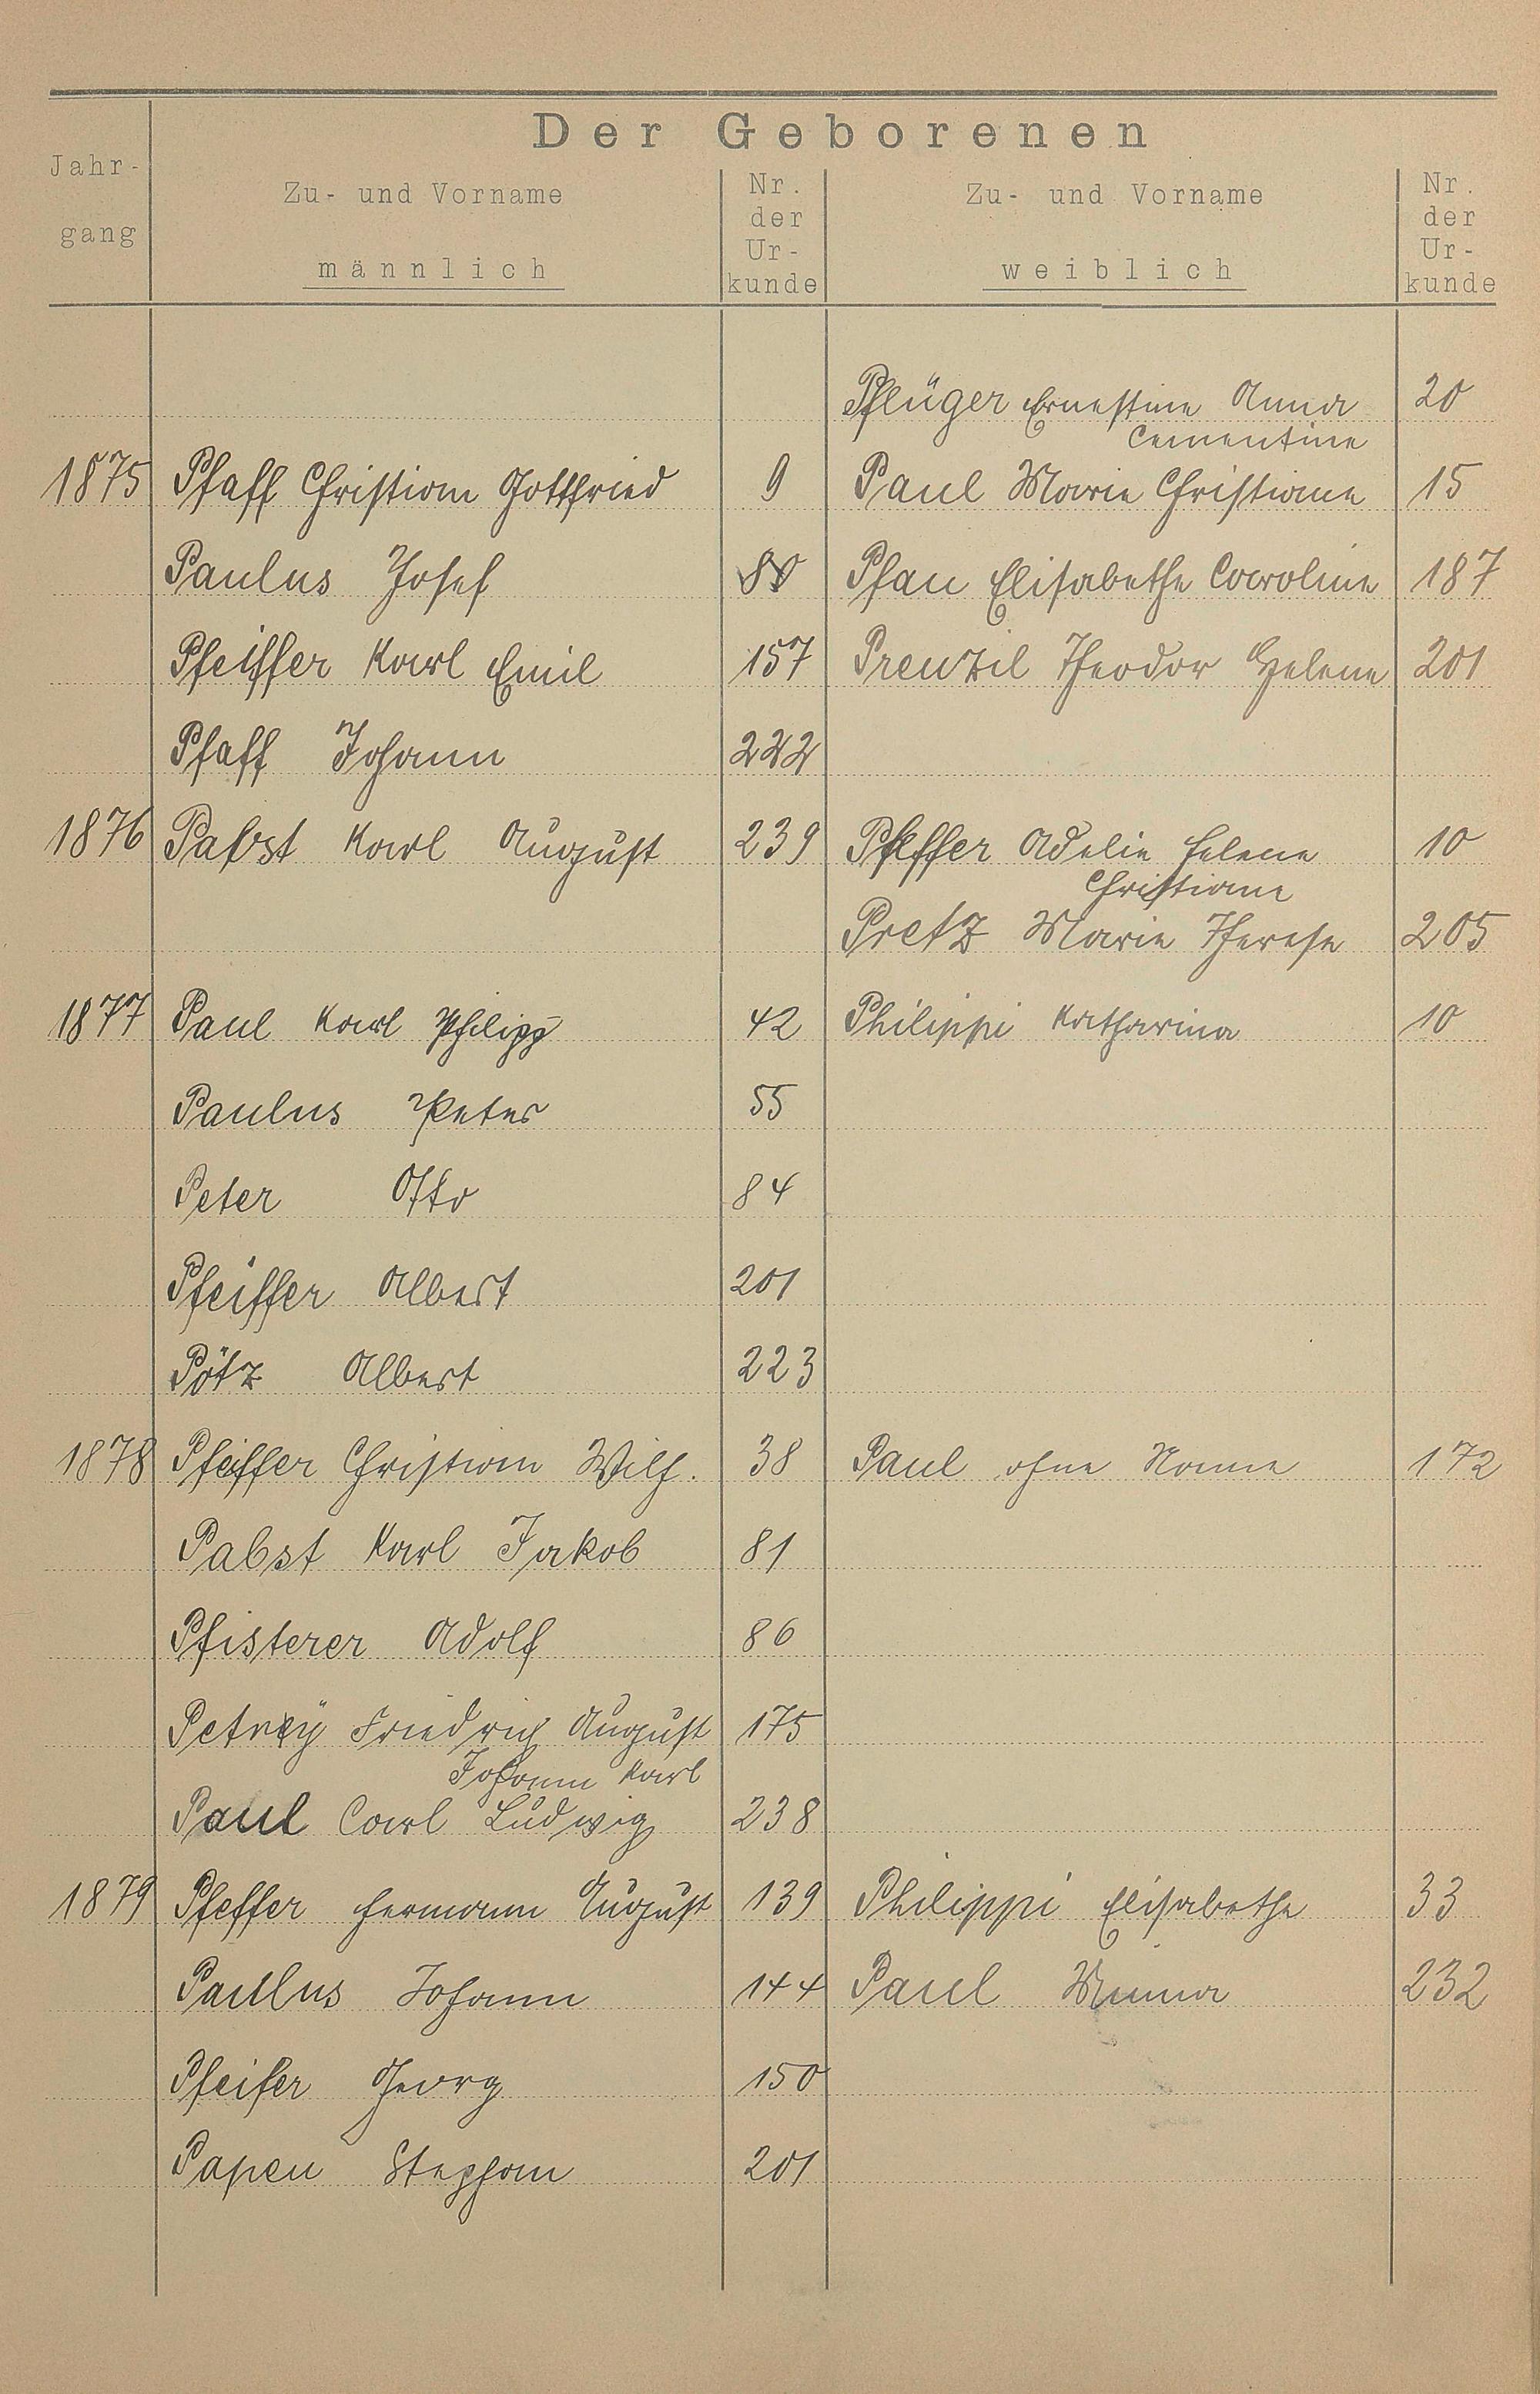 Der Geborenen
Jahr-
gang
Zu- und Vorname
männlich
Nr.
der
Ur-
kunde
Zu- und Vorname
weiblich
Nr.
der
Ur-
kunde
Pflüger Ernestine Anna 20
Cementine
1875 Pfaff Christian Gottfried 9 Paul Marie Christiane 15
Paulus Josef 80 Pfau Elisabethe Caroline 187
Pfeiffer Karl Emil 157 Prenzil Theodor Helene 201
Pfaff Johann 222
1876 Pabst Karl August 239 Pfeffer Adelie Helene 10
Christiane
Pretz Marie Therese 205
1877 Paul Karl Philipp 42 Philippi Katharina 10
Paulus Peter 55
Peter Otto 84
Pfeiffer Albert 201
Pötz Albert 223
1878 Pfeiffer Christian Wilh. 38 Paul ohne Name 172
Pabst Karl Jakob 81
Pfisterer Adolf 86
Petry Friedrich August 175
Johann Karl
Paul Carl Ludwig 238
1879 Pfeffer Hermann August 139 Philippi Elisabethe 33
Paulus Johann 144 Paul Minna 232
Pfeifer Georg 150
Papen Stephan 201